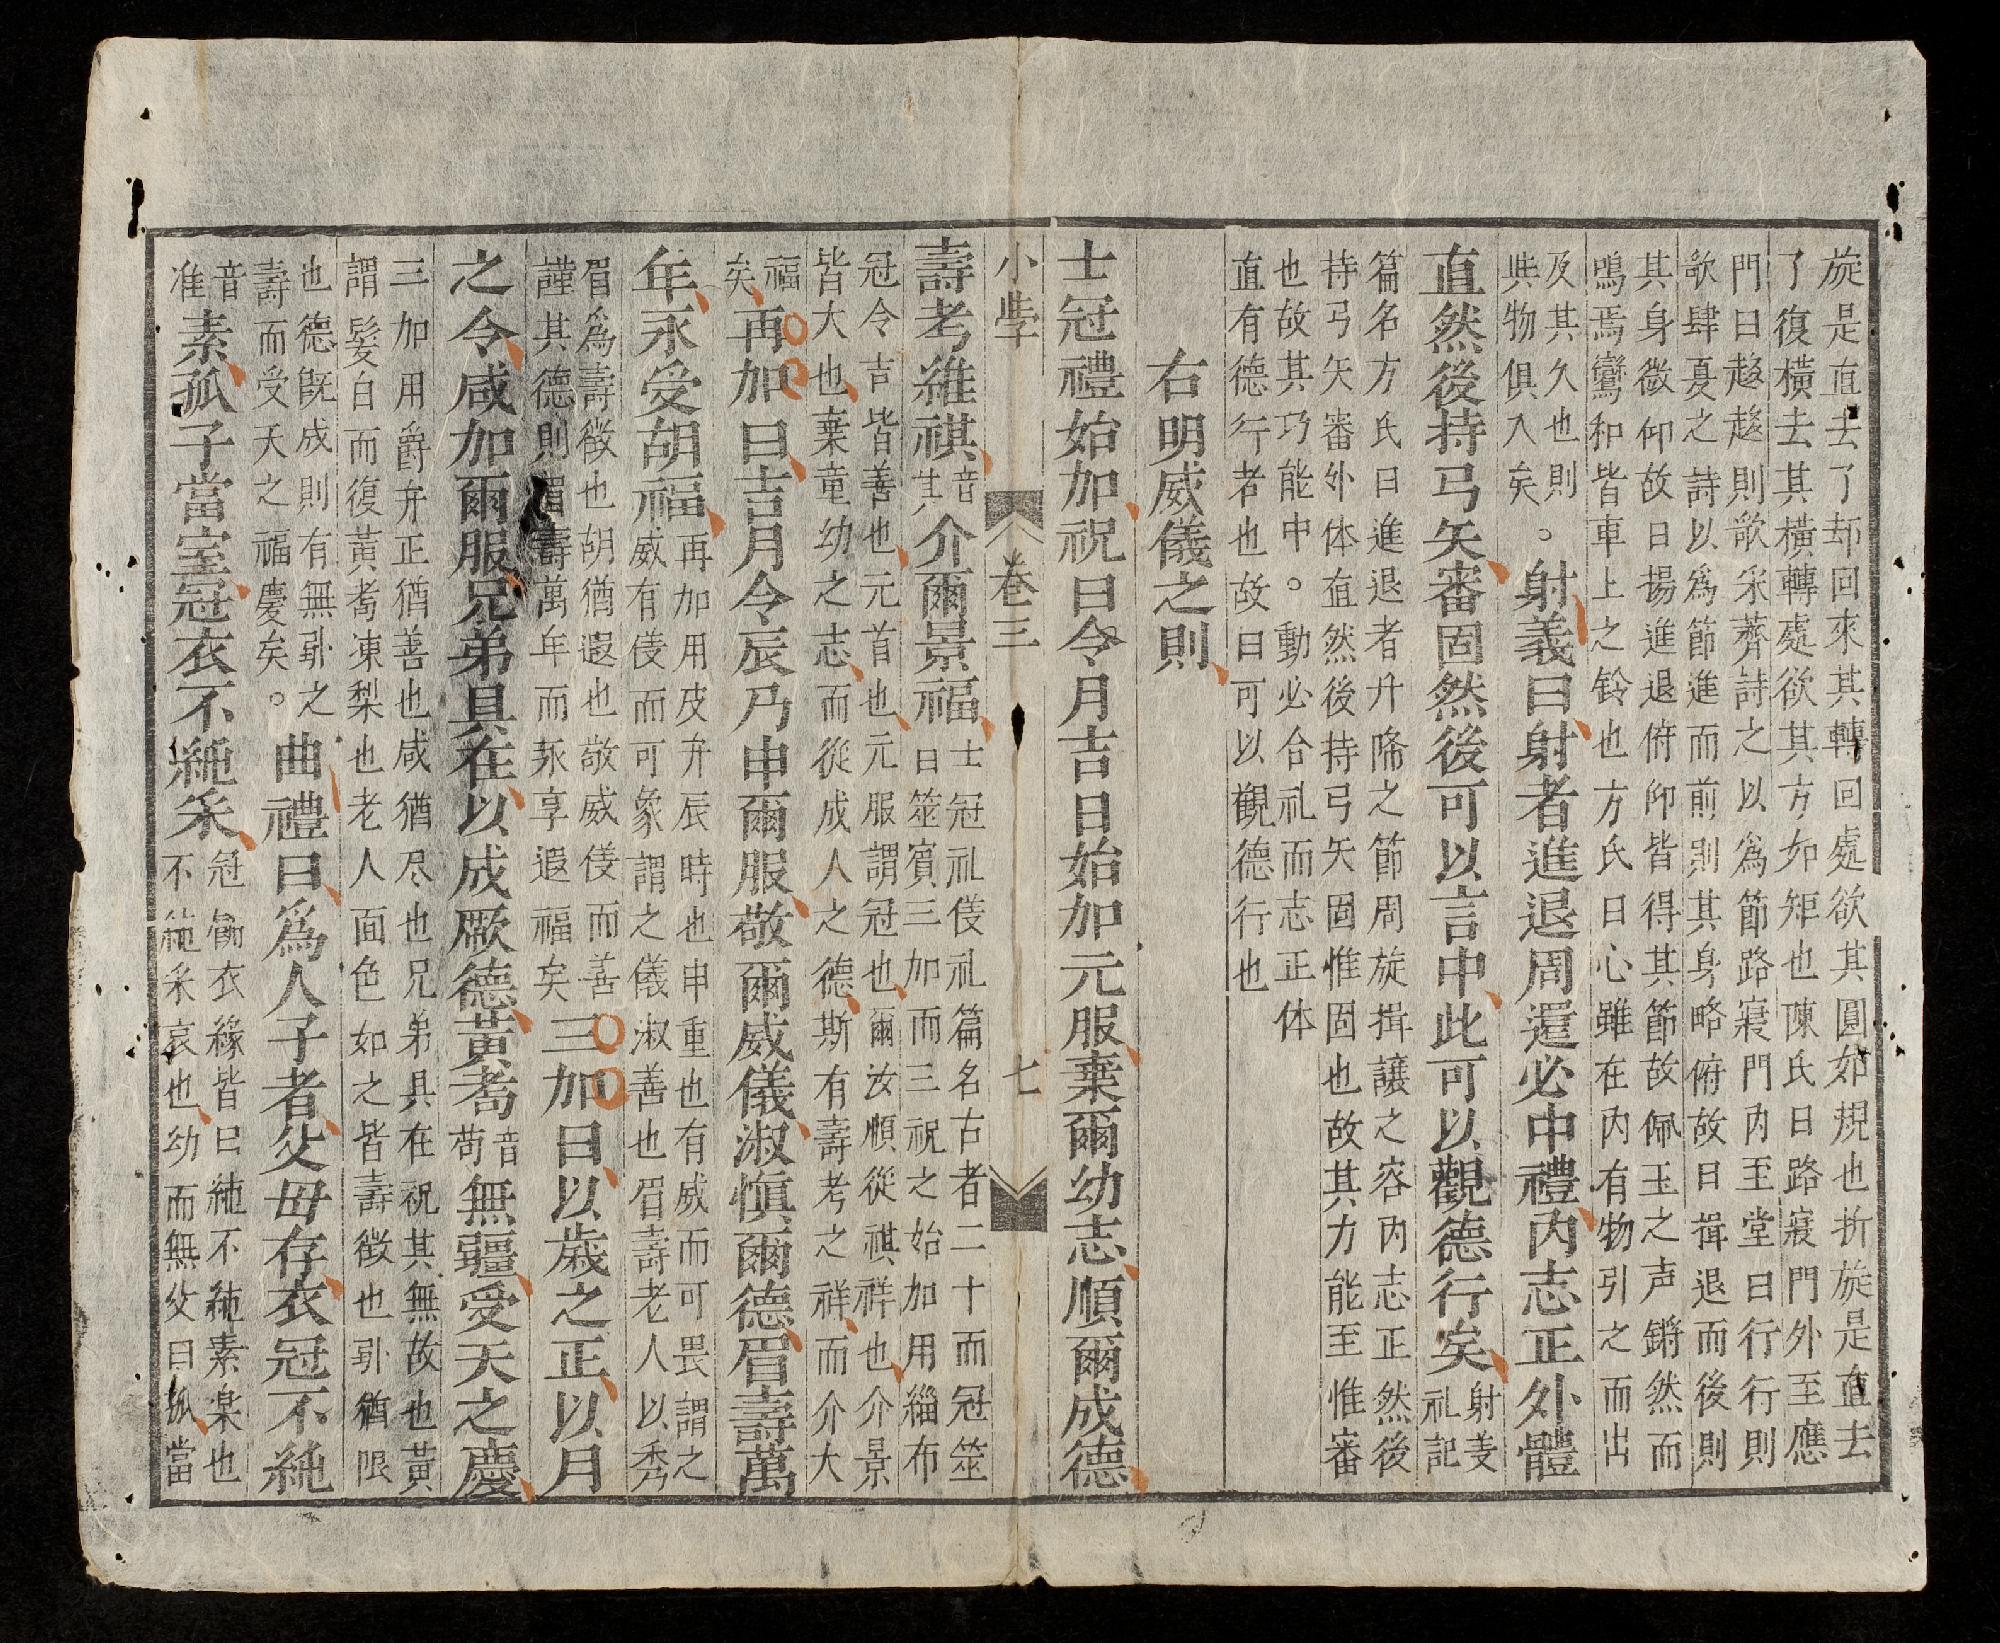 旋是直去了却回來其轉回處欲其圓如規也折旋是直去
了復橫去其橫轉處欲其方如矩也陳氏曰路寢門外至應
門曰趍趍則歌采薺詩之以爲節路寢門內至堂曰行行則
歌肆夏之詩以爲節進而前則其身略俯故曰揖退而後則
其身微仰故曰揚進退俯仰皆得其節故佩玉之声鏘然而
鳴焉鸞和皆車上之铃也方氏曰心雖在內有物引之而出
及其久也則
與物俱入矣。射義曰射者進退周還必中禮內志正外體
直然後持弓矢審固然後可以言中此可以觀德行矣射义礼記
篇名方氏曰進退者升降之節周旋揖讓之容內志正然後
持弓矢審外体直然後持弓矢固惟固也故其力能至惟審
也故其巧能中。動必合礼而志正体
直有德行者也故曰可以觀德行也
右明威儀之則
士冠禮始加祝曰令月吉日始加元服棄爾幼志順爾成德
小學 卷三 七
壽考維祺音其介爾景福士冠礼仪礼篇名古者二十而冠筮
日筮賓三加而三祝之始加用緇布
冠令吉皆善也元首也元服謂冠也爾汝順從祺祥也介景
皆大也棄童幼之志而從成人之德斯有壽考之祥而介大
福
矣再加曰吉月令辰乃申爾服敬爾威儀淑慎爾德眉壽萬
年永受胡福再加用皮弁辰時也申重也有威而可畏謂之
威有仪而可象謂之儀淑善也眉壽老人以秀
眉爲壽徵也胡猶遐也敬威仪而善
謹其德則眉壽萬年而永享遐福矣三加曰以歲之正以月
之令咸加爾服兄弟具在以成厥德黃耇音苟無疆受天之慶
三加用爵弁正猶善也咸猶尽也兄弟具在祝其無故也黃
謂髮白而復黃耇凍梨也老人面色如之皆壽徵也疆猶限
也德既成則有無疆之
壽而受天之福慶矣。曲禮曰爲人子者父母存衣冠不純
音
准素孤子當室冠衣不純采冠飾衣緣皆曰純不純素樂也
不純采哀也幼而無父曰孤當